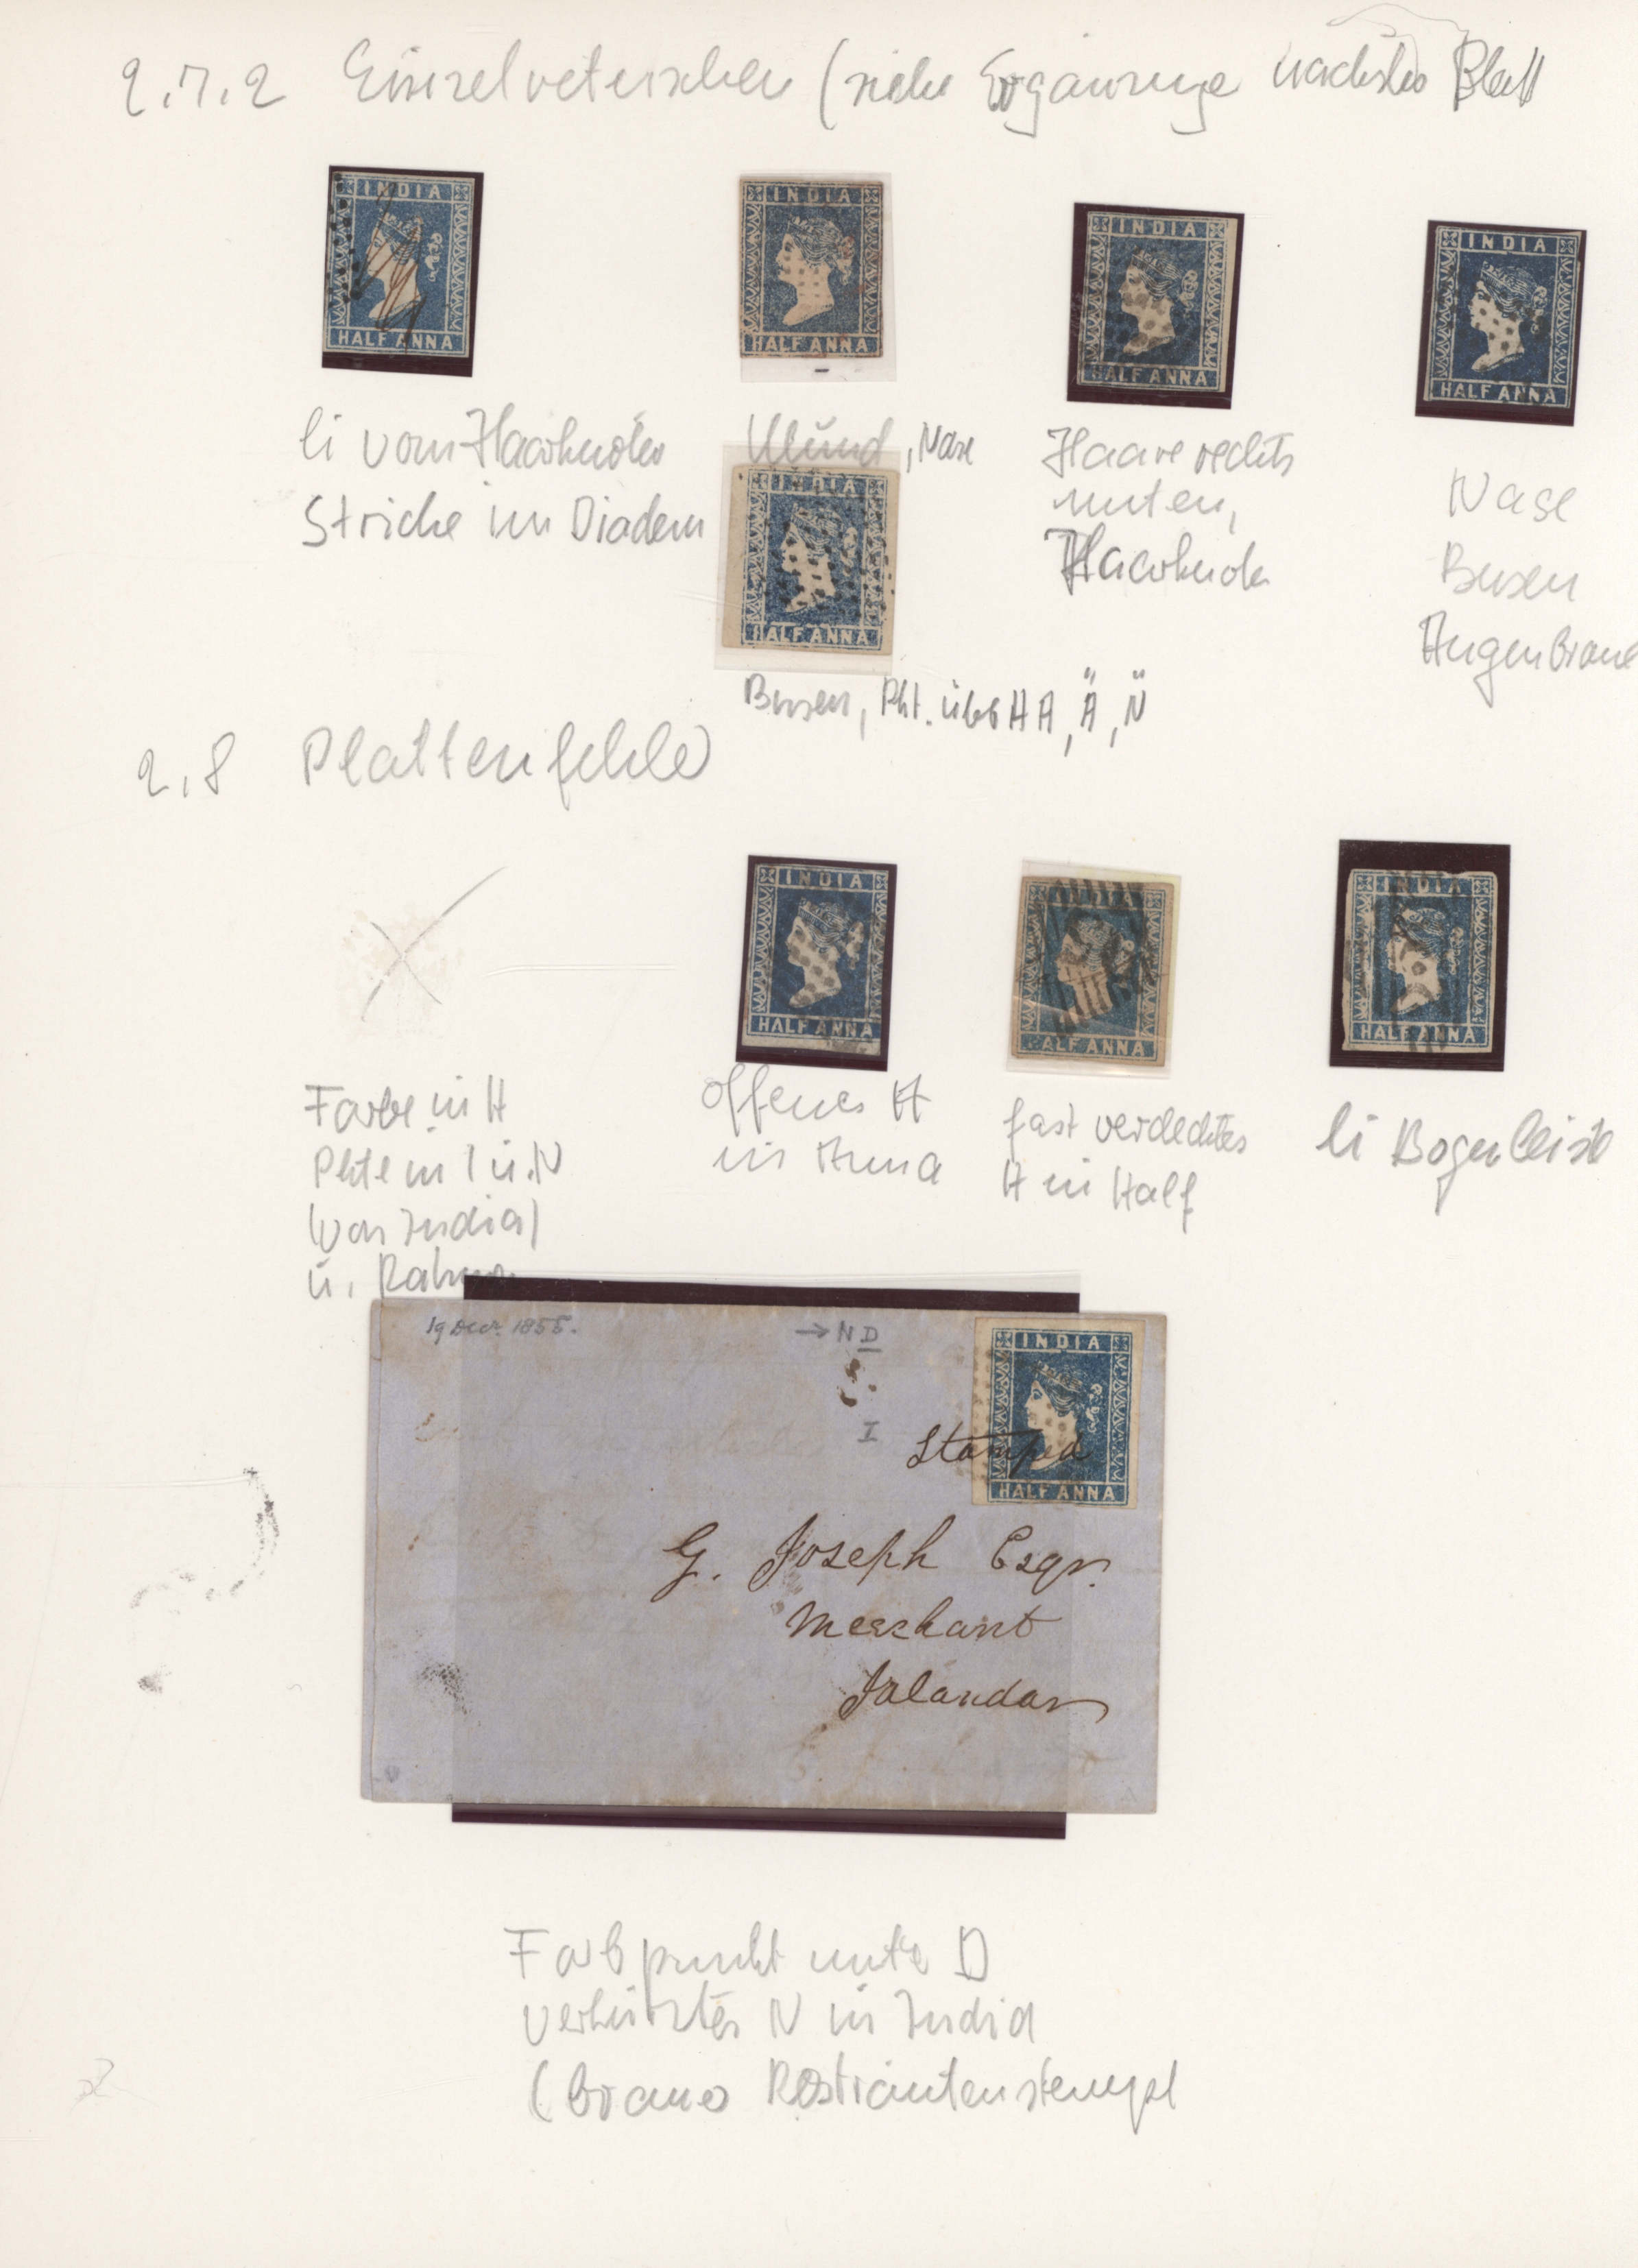 2.7.2 Einzelretuschen (siehe Ergänzung nächstes Blatt
INDIA
HALF ANNA
INDIA
HALF ANNA
INDIA
HALF ANNA
INDIA
HALF ANNA
li vom Haarknoten
Striche im Diadem
Mund, Nase
Haare rechts
unten,
Haarknoten
Nase
Busen
Augenbraue
INDIA
HALF ANNA
Busen, Pkt. über HA, Ä, N̈
2.8 Plattenfehler
INDIA
HALF ANNA
INDIA
HALF ANNA
INDIA
HALF ANNA
Farbe in H
Pkte in I u. N
(von India)
u. Rahmen
offenes A
in Anna
fast verdecktes
H in Half
li Bogenleiste
19 Decr. 1855.
→ N D
I
INDIA
HALF ANNA
Stamped
G. Joseph Esqr.
Merchant
Jalandar
Farbpunkt unter D
verkürztes N in India
(braner Rostrautenstempel